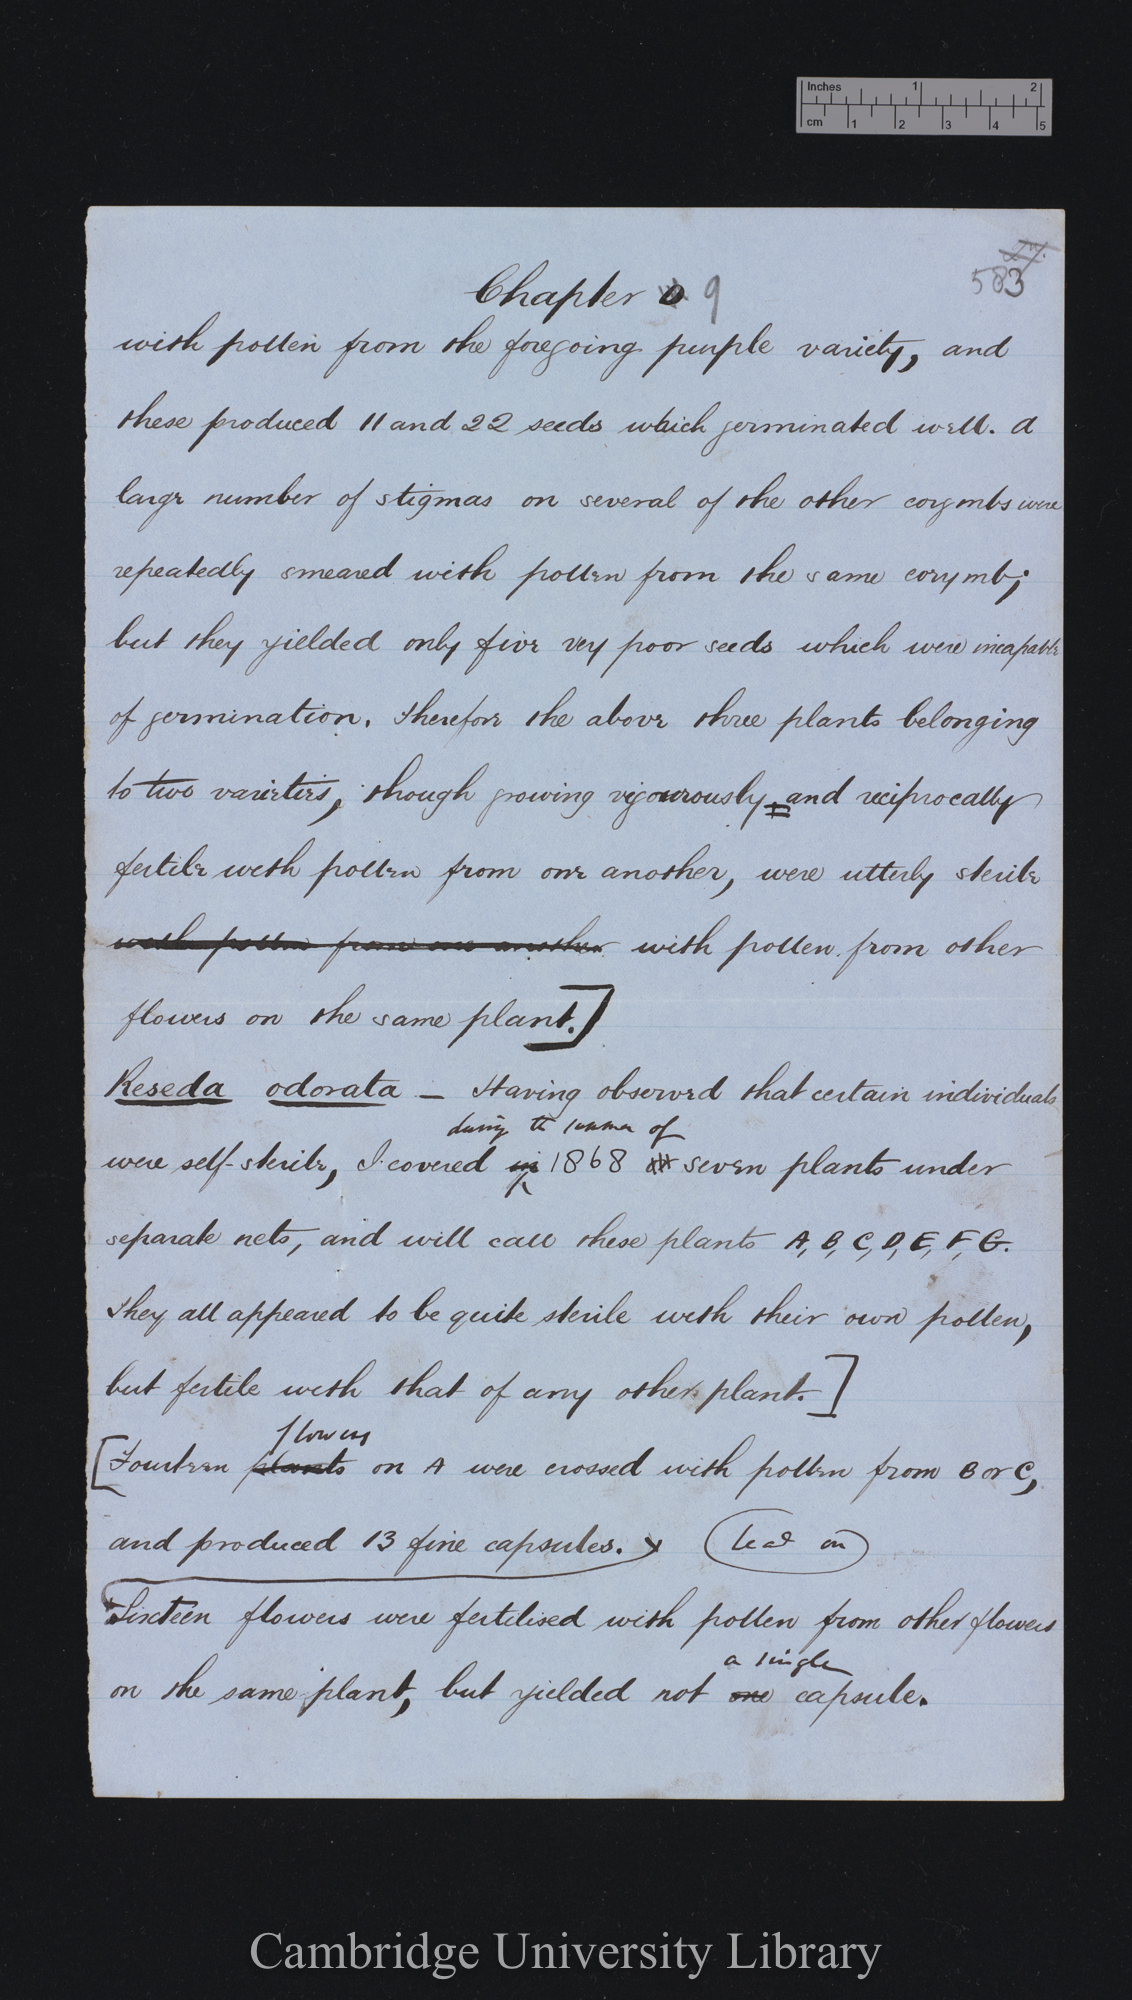 Inches 1 2
cm 1 2 3 4 5
583
Chapter 9
with pollen from the foregoing purple variety, and
these produced 11 and 22 seeds which germinated well. A
large number of stigmas on several of the other corymbs were
repeatedly smeared with pollen from the same corymb;
but they yielded only five very poor seeds which were incapable
of germination. Therefore the above three plants belonging
to two varieties, though growing vigourously and reciprocally
fertile with pollen from one another, were utterly sterile
with pollen from one another with pollen from other
flowers on the same plant.]
Reseda odorata — Having observed that certain individuals
during the summer of
were self-sterile, I covered in 1868 seven plants under
separate nets, and will call these plants A, B, C, D, E, F, G.
They all appeared to be quite sterile with their own pollen,
but fertile with that of any other plant.]
flowers
[Fourteen plants on A were crossed with pollen from B or C,
and produced 13 fine capsules. lead on
Sixteen flowers were fertilised with pollen from other flowers
a single
on the same plant, but yielded not one capsule.
Cambridge University Library